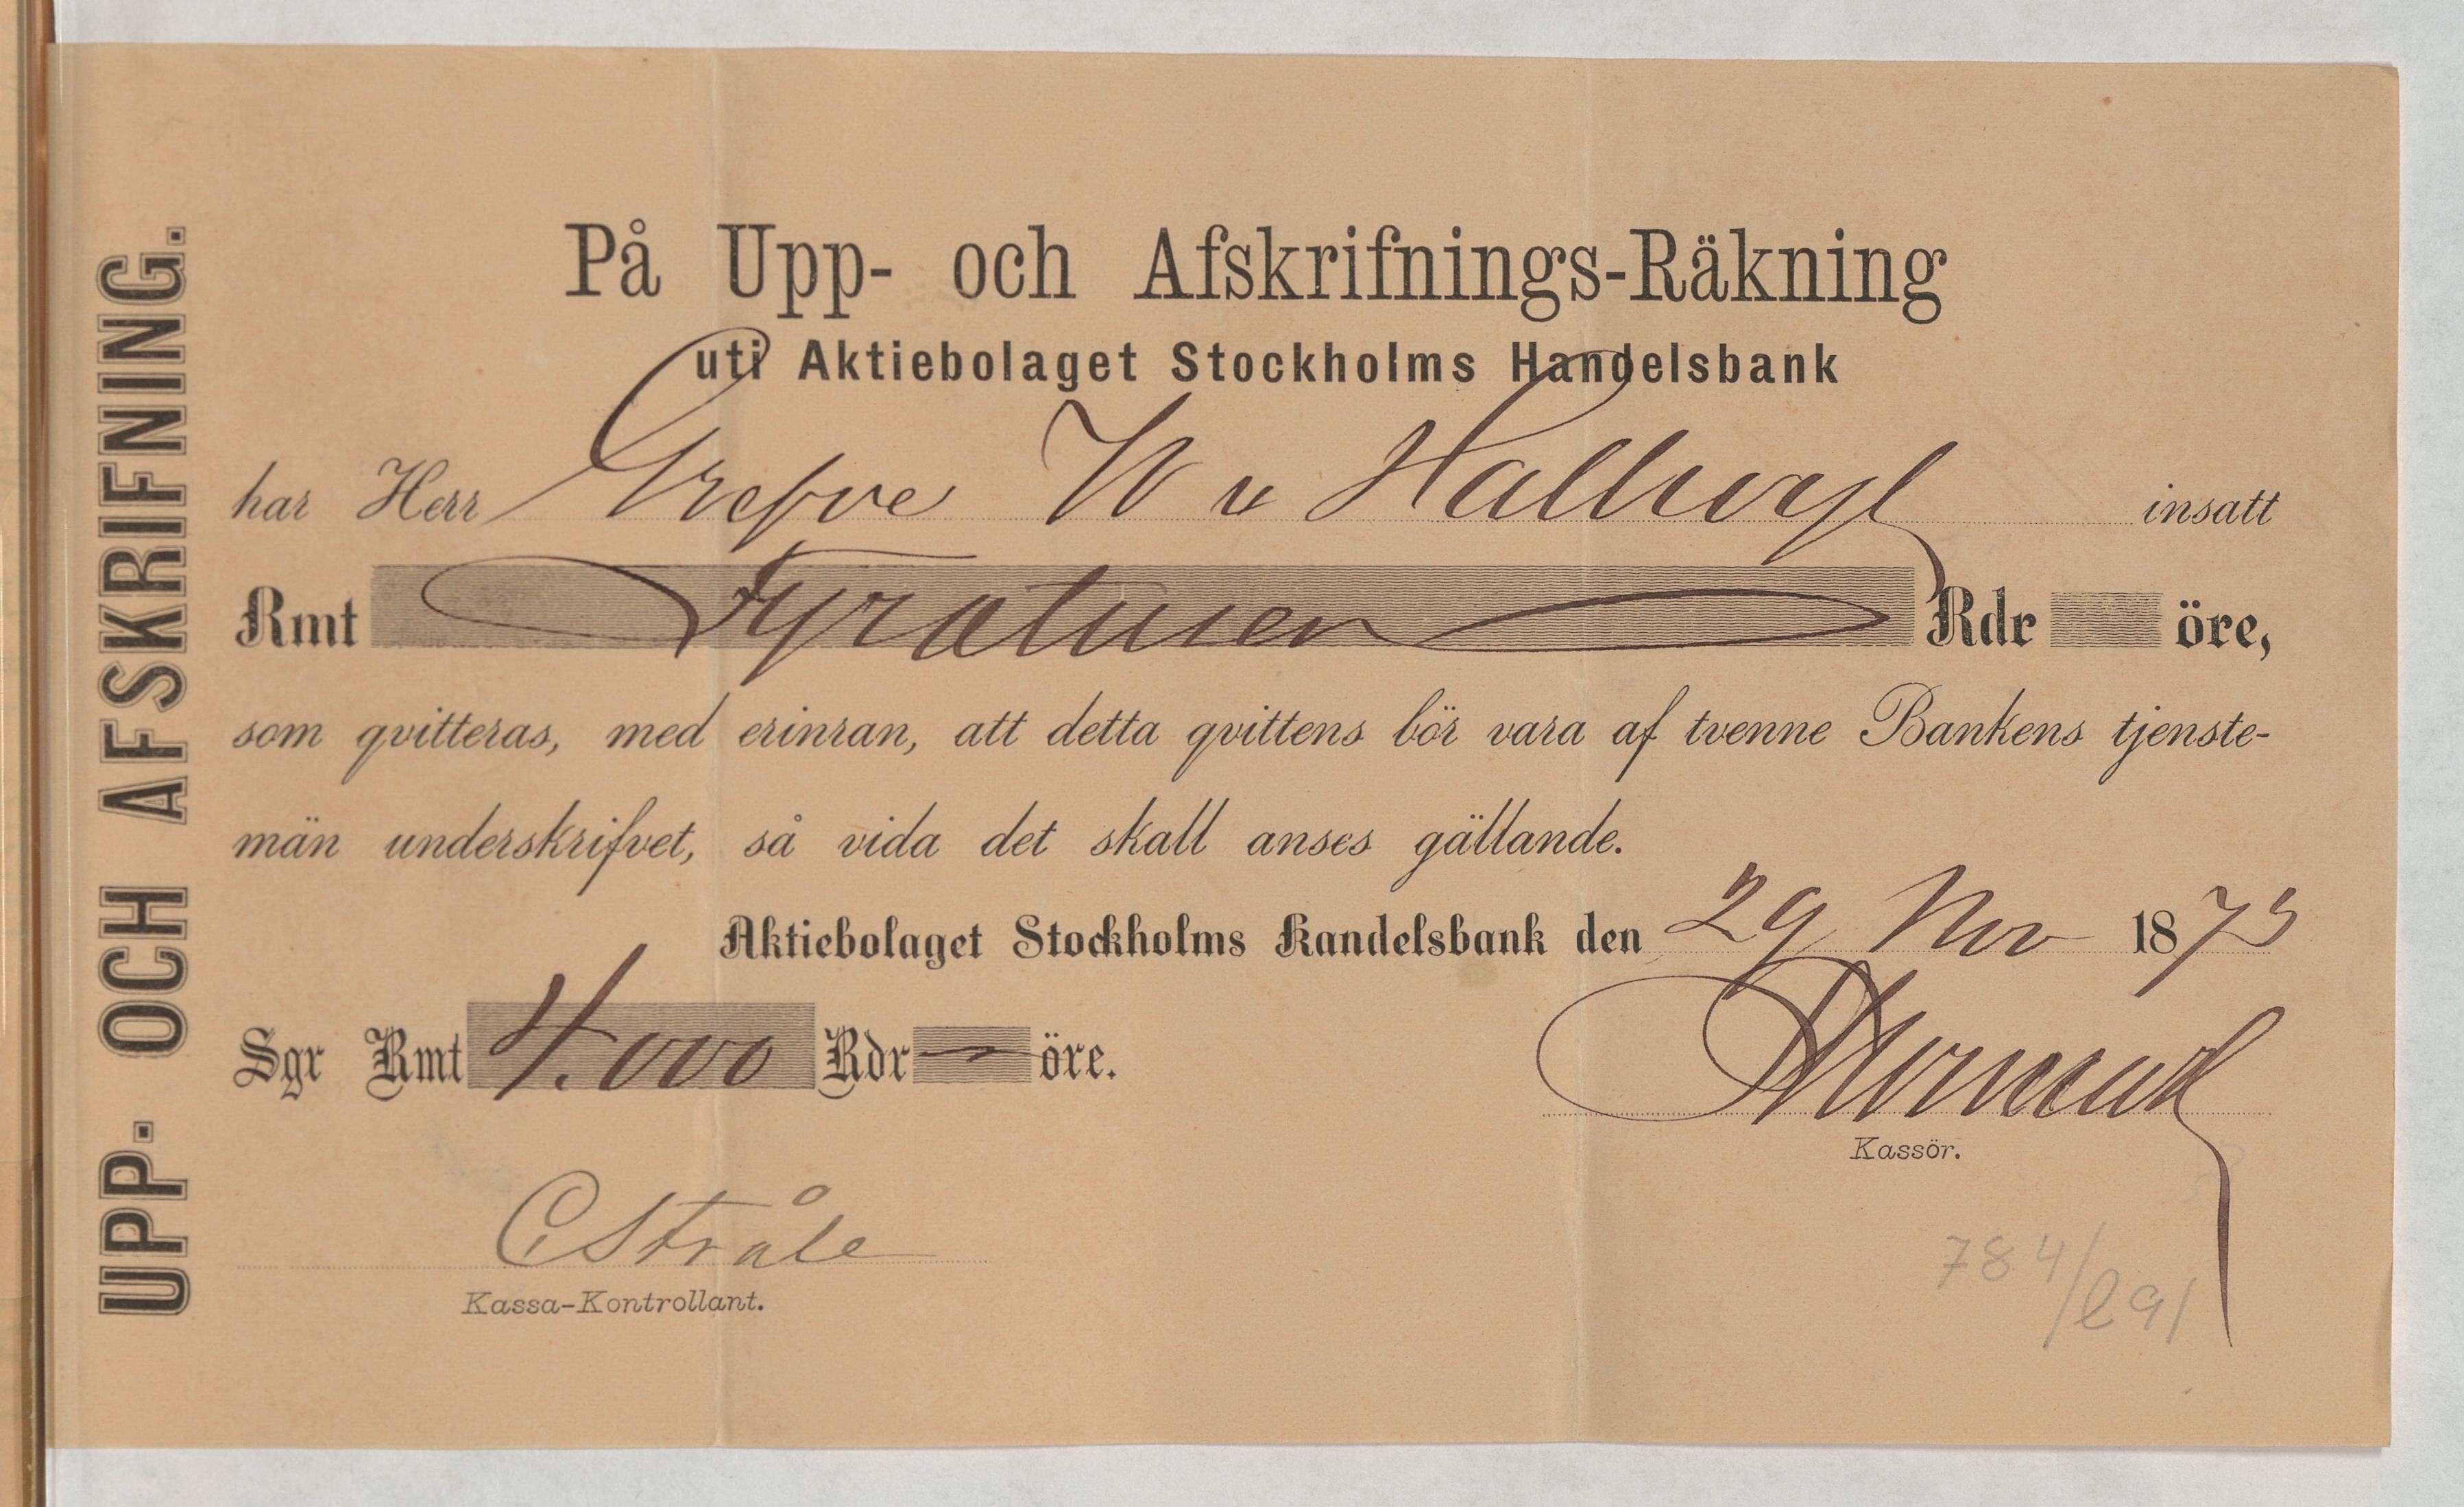 UPP- OCH AFSKRIFNING.
På Upp- och Afskrifnings-Räkning
uti Aktiebolaget Stockholms Handelsbank
har Herr Grefve W v Hallwyl insatt
Rmt Fyratusen Rdr öre,
som qvitteras, med erinran, att detta qvittens bör vara af tvenne Bankens tjenste-
män underskrifvet, så vida det skall anses gällande.
Aktiebolaget Stockholms Handelsbank den 29 Nov 1873
Sgr Rmt 4.000 Rdr — öre.
Kassör.
C Stråle
Kassa-Kontrollant.
784/291